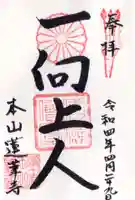 奉拝
令和四年四月二九日
一向上人
本山蓮華寺